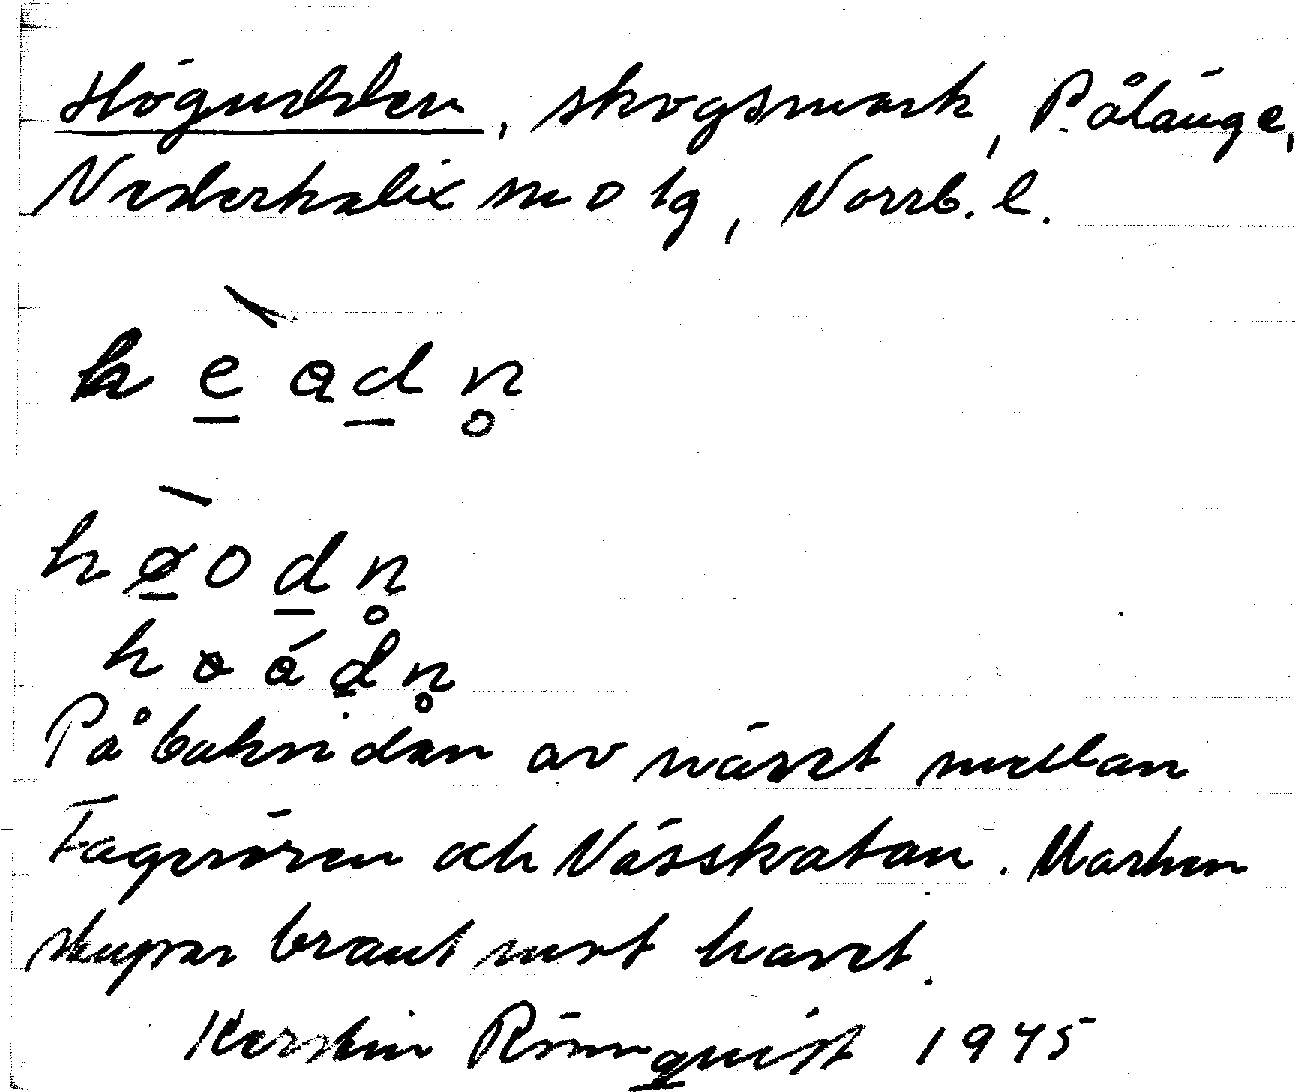 Högudden, skogsmark, Pålänge,
Nederkalix sn o tg, Norrb. l.
På baksidan av näset mellan
Fagerören och Nässkatan. Marken
stupar brant mot havet.
Kerstin Rönnquist 1945